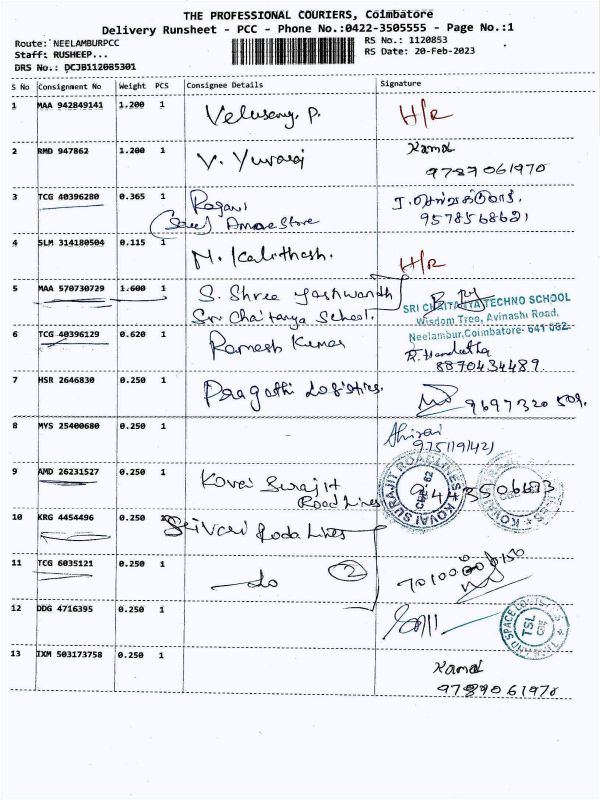 THE PROFESSIONAL COURIERS, Coimbatore
Delivery Runsheet - PCC - Phone No.:0422-3505555 - Page No.:1
Route: NEELAMBURPCC
RS No.: 1120853
Staff: RUSHEEP...
RS Date: 20-Feb-2023
DRS No.: DCJB112085301
S No Consignment No Weight PCS Consignee Details Signature
1 MAA 942849141 1.200 1 Velusamy. P. H/R
2 RMD 947862 1.200 1 V. Yuvaraj Kamal
9787061970
3 TCG 40396280 0.365 1 Ragavi
Store 9578568621
4 SLM 314180504 0.115 1 M. Kalithash. H/R
5 MAA 570730729 1.600 1 S. Shree Yashwandh
Sri Chaitanya School.
SRI CHAITANYA TECHNO SCHOOL
Wisdom Tree, Avinashi Road,
Neelambur, Coimbatore- 641 062
6 TCG 40396129 0.620 1 Ramesh Kumar
8870434489.
7 HSR 2646830 0.250 1 Pragathi Logistics. 9697320509.
8 MYS 25400680 0.250 1
9751191421
9 AMD 26231527 0.250 1 Kovai Surajit
Road Lines
KOVAI SURAJIT ROAD LINES
CBE-62
10 KRG 4454496 0.250 Srivari Roda Lines
11 TCG 6035121 0.250 1 do 2
12 DDG 4716395 0.250 1
TSL
CBE
13 IXM 503173758 0.250 1 Kamal